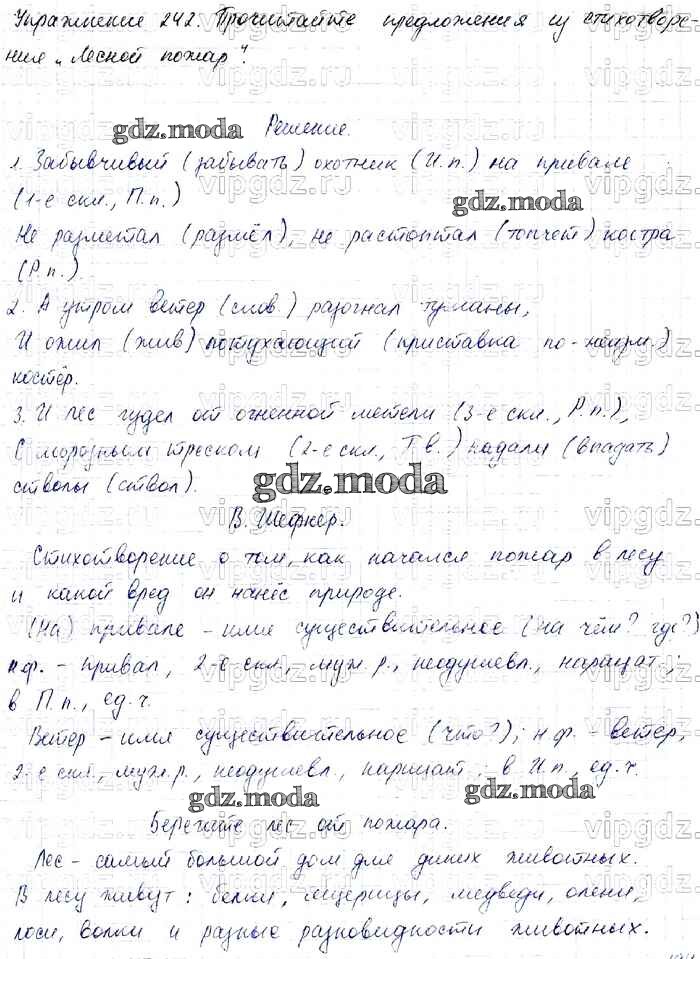 Упражнение 242. Прочитайте предложения из стихотворе-
ния „Лесной пожар".
Решение.
1. Забывчивый (забывать) охотник (И.п.) на привале
(1-е скл., П.п.)
Не разметал (размёл), не растоптал (топчет) костра
(Р.п.)
2. А утром ветер (слов.) разогнал туманы,
И ожил (жив) потухающий (приставка по-неизм.)
костёр.
3. И лес гудел от огненной метели (3-е скл., Р.п.),
С морозным треском (2-е скл., Тв.) падали (впадать)
стволы (ствол).
В. Шефнер.
Стихотворение о том, как начался пожар в лесу
и какой вред он нанёс природе.
(На) привале – имя существительное (на чём? где?)
н.ф. – привал, 2-е скл., муж.р., неодушевл., нарицат.;
в П.п., ед.ч.
Ветер – имя существительное (что?); н.ф. – ветер,
2-е скл., муж.р., неодушевл., нарицат.; в И.п., ед.ч.
Берегите лес от пожара.
Лес – самый большой дом для диких животных.
В лесу живут: белки, ящерицы, медведи, олени,
лоси, волки и разные разновидности животных.
gdz.moda
vipgdz.ru